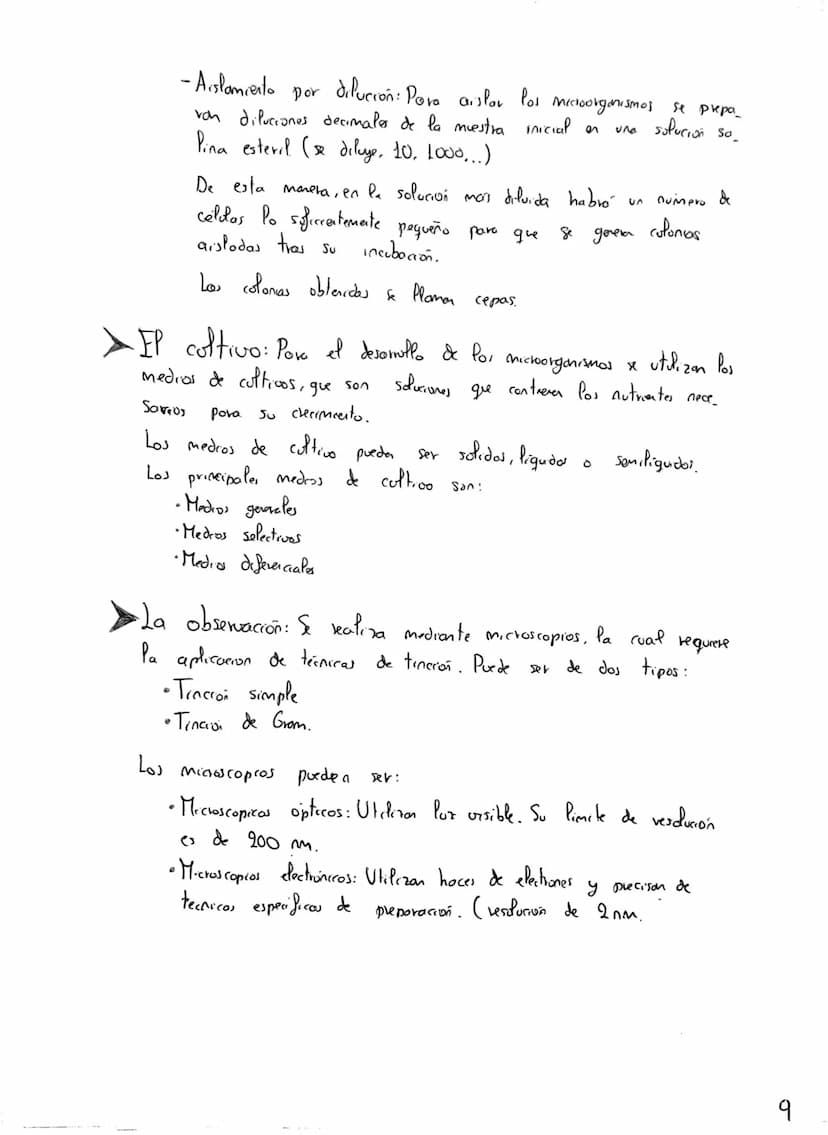 - Aislamiento por dilución: Para aislar los microorganismos se prepa_
ran diluciones decimales de la muestra inicial en una solución sa_
lina esteril (se diluye, 10, 1000...)
De esta manera, en la solución más diluida habrá un número de
células lo suficientemente pequeño para que se generen colonias
aisladas tras su incubación.
Las colonias obtenidas se llaman cepas.
➤ El cultivo: Para el desarrollo de los microorganismos se utilizan los
medios de cultivos, que son soluciones que contienen los nutrientes nece_
sarios para su crecimiento.
Los medios de cultivo pueden ser solidos, líquidos o semilíquidos.
Los principales medios de cultivo son:
• Medios generales
• Medios selectivos
• Medios diferenciales
➤ La observación: Se realiza mediante microscopios, la cual requiere
la aplicacion de técnicas de tinción. Puede ser de dos tipos:
• Tinción simple
• Tinción de Gram.
Los microscopios pueden ser:
• Microscopios ópticos: Utilizan luz visible. Su límite de resolución
es de 200 nm.
• Microscopios electrónicos: Utilizan haces de electrones y precisan de
tecnicas específicas de preparación. (resolución de 2nm.
9